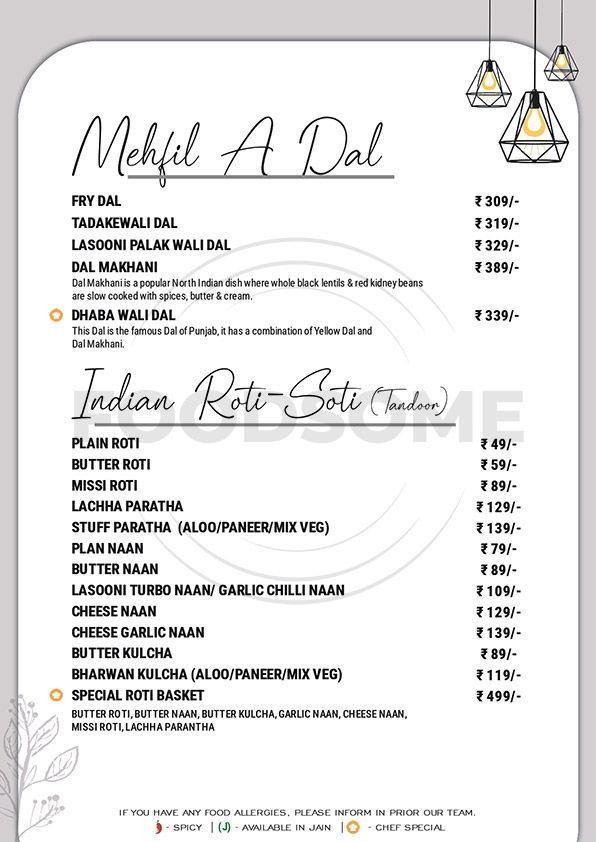 Mehfil A Dal
FRY DAL ₹ 309/-
TADAKEWALI DAL ₹ 319/-
LASOONI PALAK WALI DAL ₹ 329/-
DAL MAKHANI ₹ 389/-
Dal Makhani is a popular North Indian dish where whole black lentils & red kidney beans
are slow cooked with spices, butter & cream.
DHABA WALI DAL ₹ 339/-
This Dal is the famous Dal of Punjab, it has a combination of Yellow Dal and
Dal Makhani.
Indian Roti-Soti (Tandoor)
FOODSOME
PLAIN ROTI ₹ 49/-
BUTTER ROTI ₹ 59/-
MISSI ROTI ₹ 89/-
LACHHA PARATHA ₹ 129/-
STUFF PARATHA (ALOO/PANEER/MIX VEG) ₹ 139/-
PLAN NAAN ₹ 79/-
BUTTER NAAN ₹ 89/-
LASOONI TURBO NAAN/ GARLIC CHILLI NAAN ₹ 109/-
CHEESE NAAN ₹ 129/-
CHEESE GARLIC NAAN ₹ 139/-
BUTTER KULCHA ₹ 89/-
BHARWAN KULCHA (ALOO/PANEER/MIX VEG) ₹ 119/-
SPECIAL ROTI BASKET ₹ 499/-
BUTTER ROTI, BUTTER NAAN, BUTTER KULCHA, GARLIC NAAN, CHEESE NAAN,
MISSI ROTI, LACHHA PARANTHA
IF YOU HAVE ANY FOOD ALLERGIES, PLEASE INFORM IN PRIOR OUR TEAM.
- SPICY | (J) - AVAILABLE IN JAIN | - CHEF SPECIAL